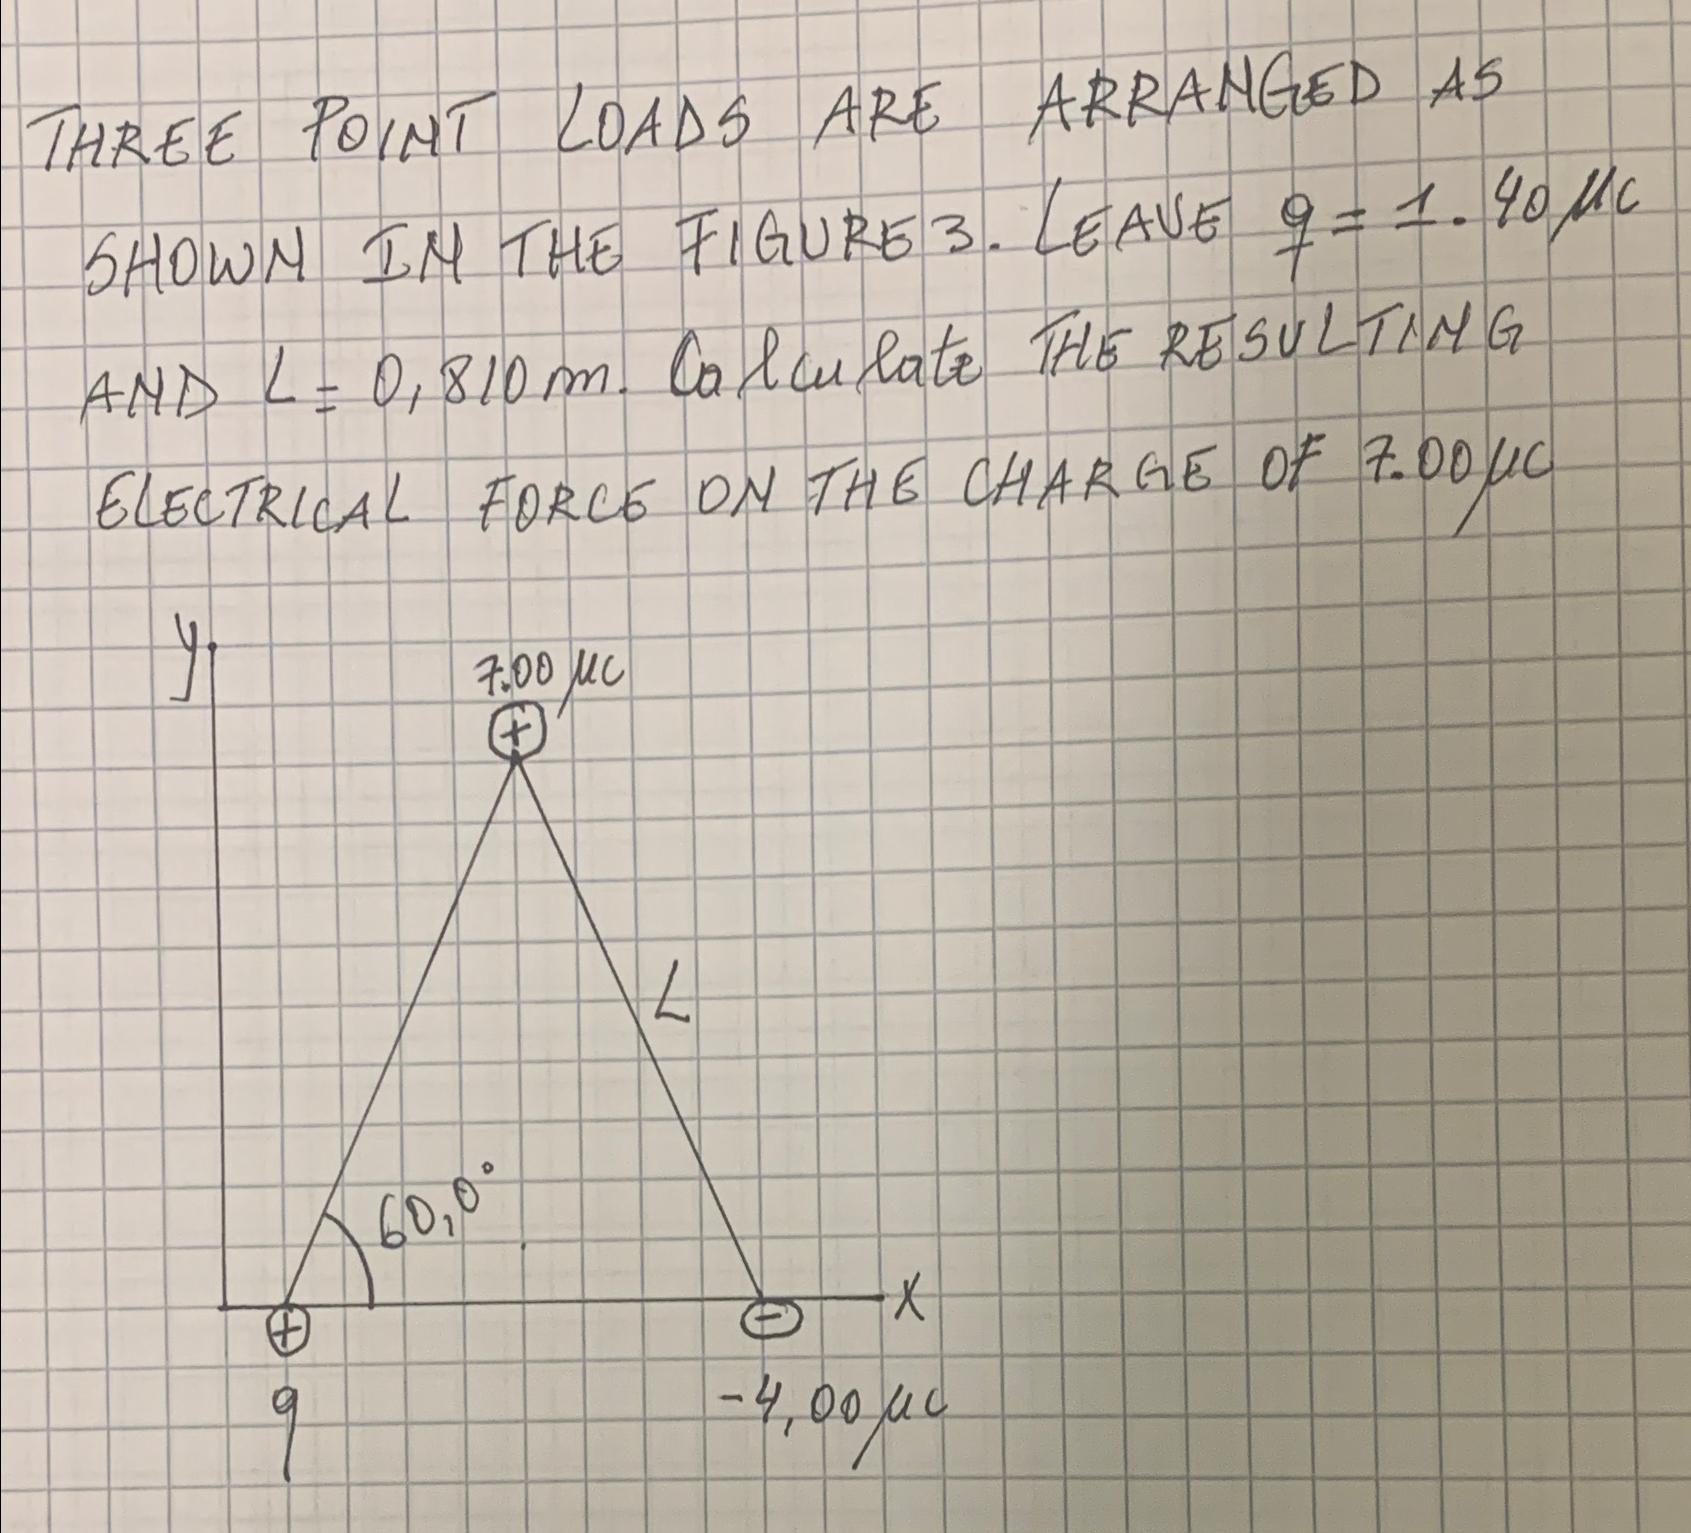 THREE POINT LOADS ARE ARRANGED AS
SHOWN IN THE FIGURE 3. LEAVE q = 1.40 μC
AND L = 0,810 m. Calculate THE RESULTING
ELECTRICAL FORCE ON THE CHARGE OF 7.00 μC
y
7.00 μC
+
L
60,0°
x
+
−
q
-4,00 μC